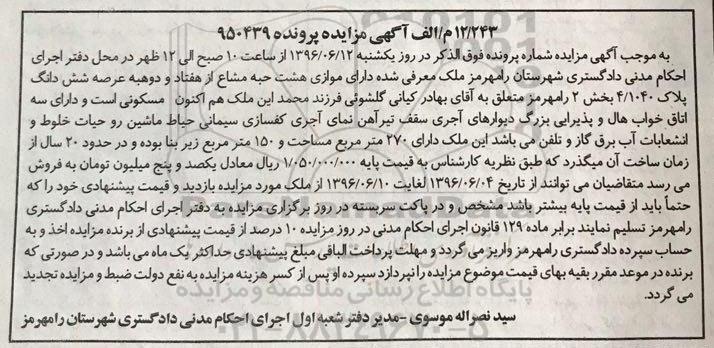 ۱۲/۲۴۳/م/الف آگهی مزایده پرونده ۹۵۰۴۳۹
به موجب آگهی مزایده شماره پرونده فوق الذکر در روز یکشنبه ۱۳۹۶/۰۶/۱۲ از ساعت ۱۰ صبح الی ۱۲ ظهر در محل دفتر اجرای
احکام مدنی دادگستری شهرستان رامهرمز ملک معرفی شده دارای موازی هشت حبه مشاع از هفتاد و دوهبه عرصه شش دانگ
پلاک ۴/۱۰۴۰ بخش ۲ رامهرمز متعلق به آقای بهادر کیانی گلشوئی فرزند محمد این ملک هم اکنون مسکونی است و دارای سه
اتاق خواب هال و پذیرایی بزرگ دیوارهای آجری سقف تیرآهن نمای آجری کفسازی سیمانی حیاط ماشین رو حیات خلوط و
انشعابات آب برق گاز و تلفن می باشد این ملک دارای ۲۷۰ متر مربع مساحت و ۱۵۰ متر مربع زیر بنا بوده و در حدود ۲۰ سال از
زمان ساخت آن میگذرد که طبق نظریه کارشناس به قیمت پایه ۱/۰۵۰/۰۰۰/۰۰۰ ریال معادل یکصد و پنج میلیون تومان به فروش
می رسد متقاضیان می توانند از تاریخ ۱۳۹۶/۰۶/۰۴ لغایت ۱۳۹۶/۰۶/۱۰ از ملک مورد مزایده بازدید و قیمت پیشنهادی خود را که
حتماً باید از قیمت پایه بیشتر باشد مشخص و در پاکت سربسته در روز برگزاری مزایده به دفتر اجرای احکام مدنی دادگستری
رامهرمز تسلیم نمایند برابر ماده ۱۲۹ قانون اجرای احکام مدنی در روز مزایده ۱۰ درصد از قیمت پیشنهادی از برنده مزایده اخذ و به
حساب سپرده دادگستری رامهرمز واریز می گردد و مهلت پرداخت الباقی مبلغ پیشنهادی حداکثر یک ماه می باشد و در صورتی که
برنده در موعد مقرر بقیه بهای قیمت موضوع مزایده را نپردازد سپرده او پس از کسر هزینه مزایده به نفع دولت ضبط و مزایده تجدید
می گردد.
پایگاه اطلاع رسانی مناقصه و مزایده
سید نصراله موسوی -مدیر دفتر شعبه اول اجرای احکام مدنی دادگستری شهرستان رامهرمز